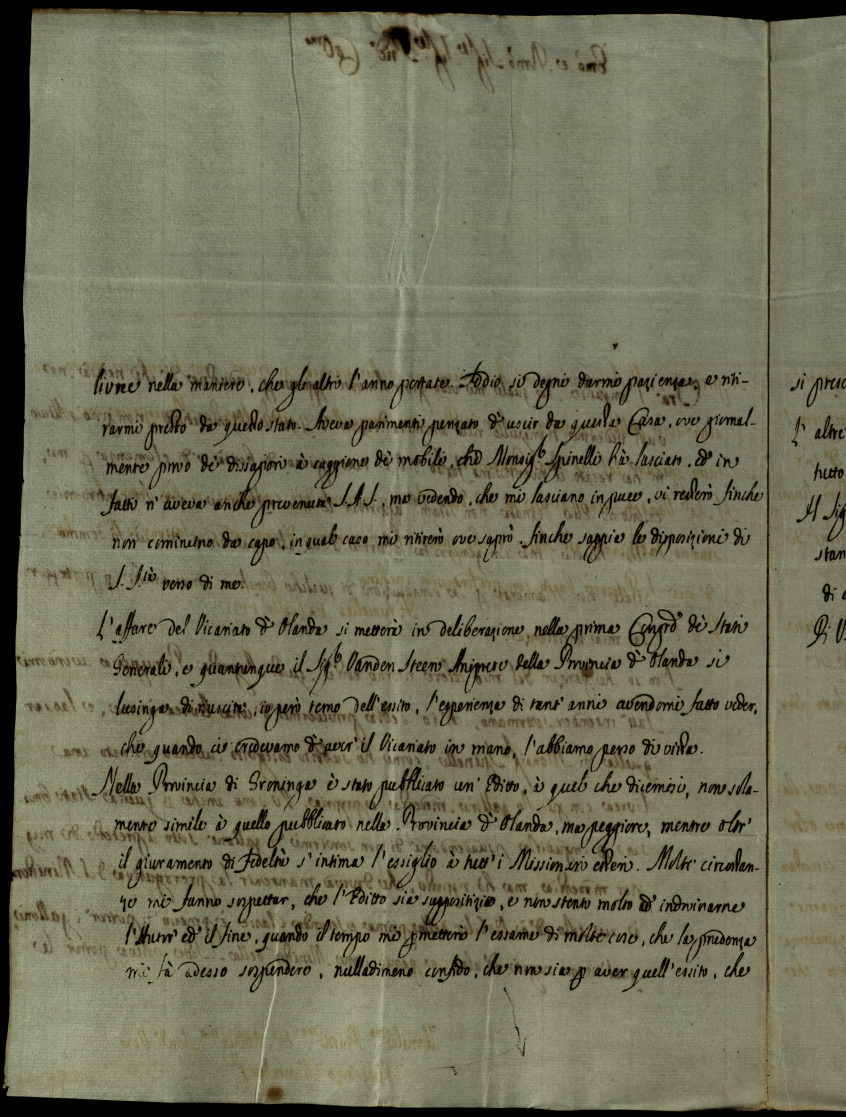 livree nella maniere, che gli altri l'anno portate. Iddio si degni darmi pazienza, e riti-
rarmi presto da questo stato. Aveva parimenti penzato d'uscir da questa Casa, ove giornal-
mente provo de dissapori à caggione de mobili, che Monsig.r Spinelli hà lasciato, ed in
fatti n'aveva anche prevenuta S.A.S., ma vedendo, che mi lasciano in pace, vi resterò finche
non comincino da capo, in qual caso mi ritirerò ove saprò. finche sappia le disposizioni di
S. S.tà verso di me.
L'affare del Vicariato d'Olanda si metterà in deliberazione nella prima de Stati
Generali, e quantunque il Sig.r Vanden Steen della Provincia d'Olanda si
lusinga di riuscita, io però temo dell'esito, l'esperienza di tant'anni avendomi fatto veder,
che quando ci credevamo d'aver'il Vicariato in mano, l'abbiamo perso di vista.
Nella Provincia di Groninga è stato pubblicato un'Editto, à quel che dicemisi, non sola-
mente simile à quello pubblicato nella Provincia d'Olanda, ma peggiore, mentre oltr'
il giuramento di fedeltà s'intima l'essiglio à tutt'i Missionarj esteri. Molte circostan-
ze mi fanno sospettar, che l'Editto sia supposititio, e non stento molto ad indovinarne
l'Autor' ed il fine, quando il tempo mi p metterà l'essame di molte cose, che la prudenza
mi fà adesso sospendere, nulladimeno confido, che non sia p aver quell'esito, che
si presc
L'altre
tutto
Al Sig
stan
di
Di V